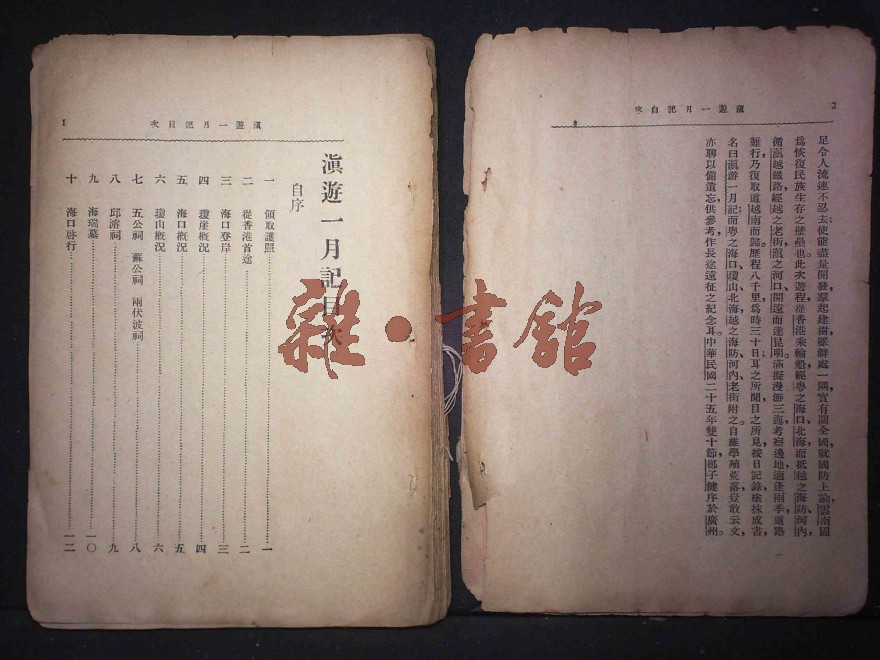 2
滇遊一月記自序
足令人流連不忍去；使能盡量開發，羣起建樹，雖僻處一隅，實有關全國，就國防上論，雲南固
爲恢復民族生存之壁壘也。此次遊程，從香港乘輪船，經粵之海口、北海，而抵越之海防、河內，
循滇越鐵路，經越之老街，滇之河口、開遠而達昆明。滿擬漫游三迤，考察邊地，適逢雨季，道路
難行，乃復取道越南而歸。歷程八千里，爲時三十日；耳之所聞，目之所見，按日記錄，塗抹成書，
名曰滇游一月記；而粵之海口、瓊山、北海，越之海防、河內、老街附之。自維學殖荒落，豈敢云文，
亦聊以備遺忘，供參考，作長途遠征之紀念耳。中華民國二十五年雙十節，鄭子健序於廣州。
滇遊一月記目次
1
滇遊一月記目次
自序
一 領取護照 一
二 從香港首途 二
三 海口登岸 三
四 瓊崖概況 四
五 海口概況 五
六 瓊山概況 六
七 五公祠 蘇公祠 兩伏波祠 八
八 邱濬祠 九
九 海瑞墓 一〇
十 海口啓行 一二
雜·書館